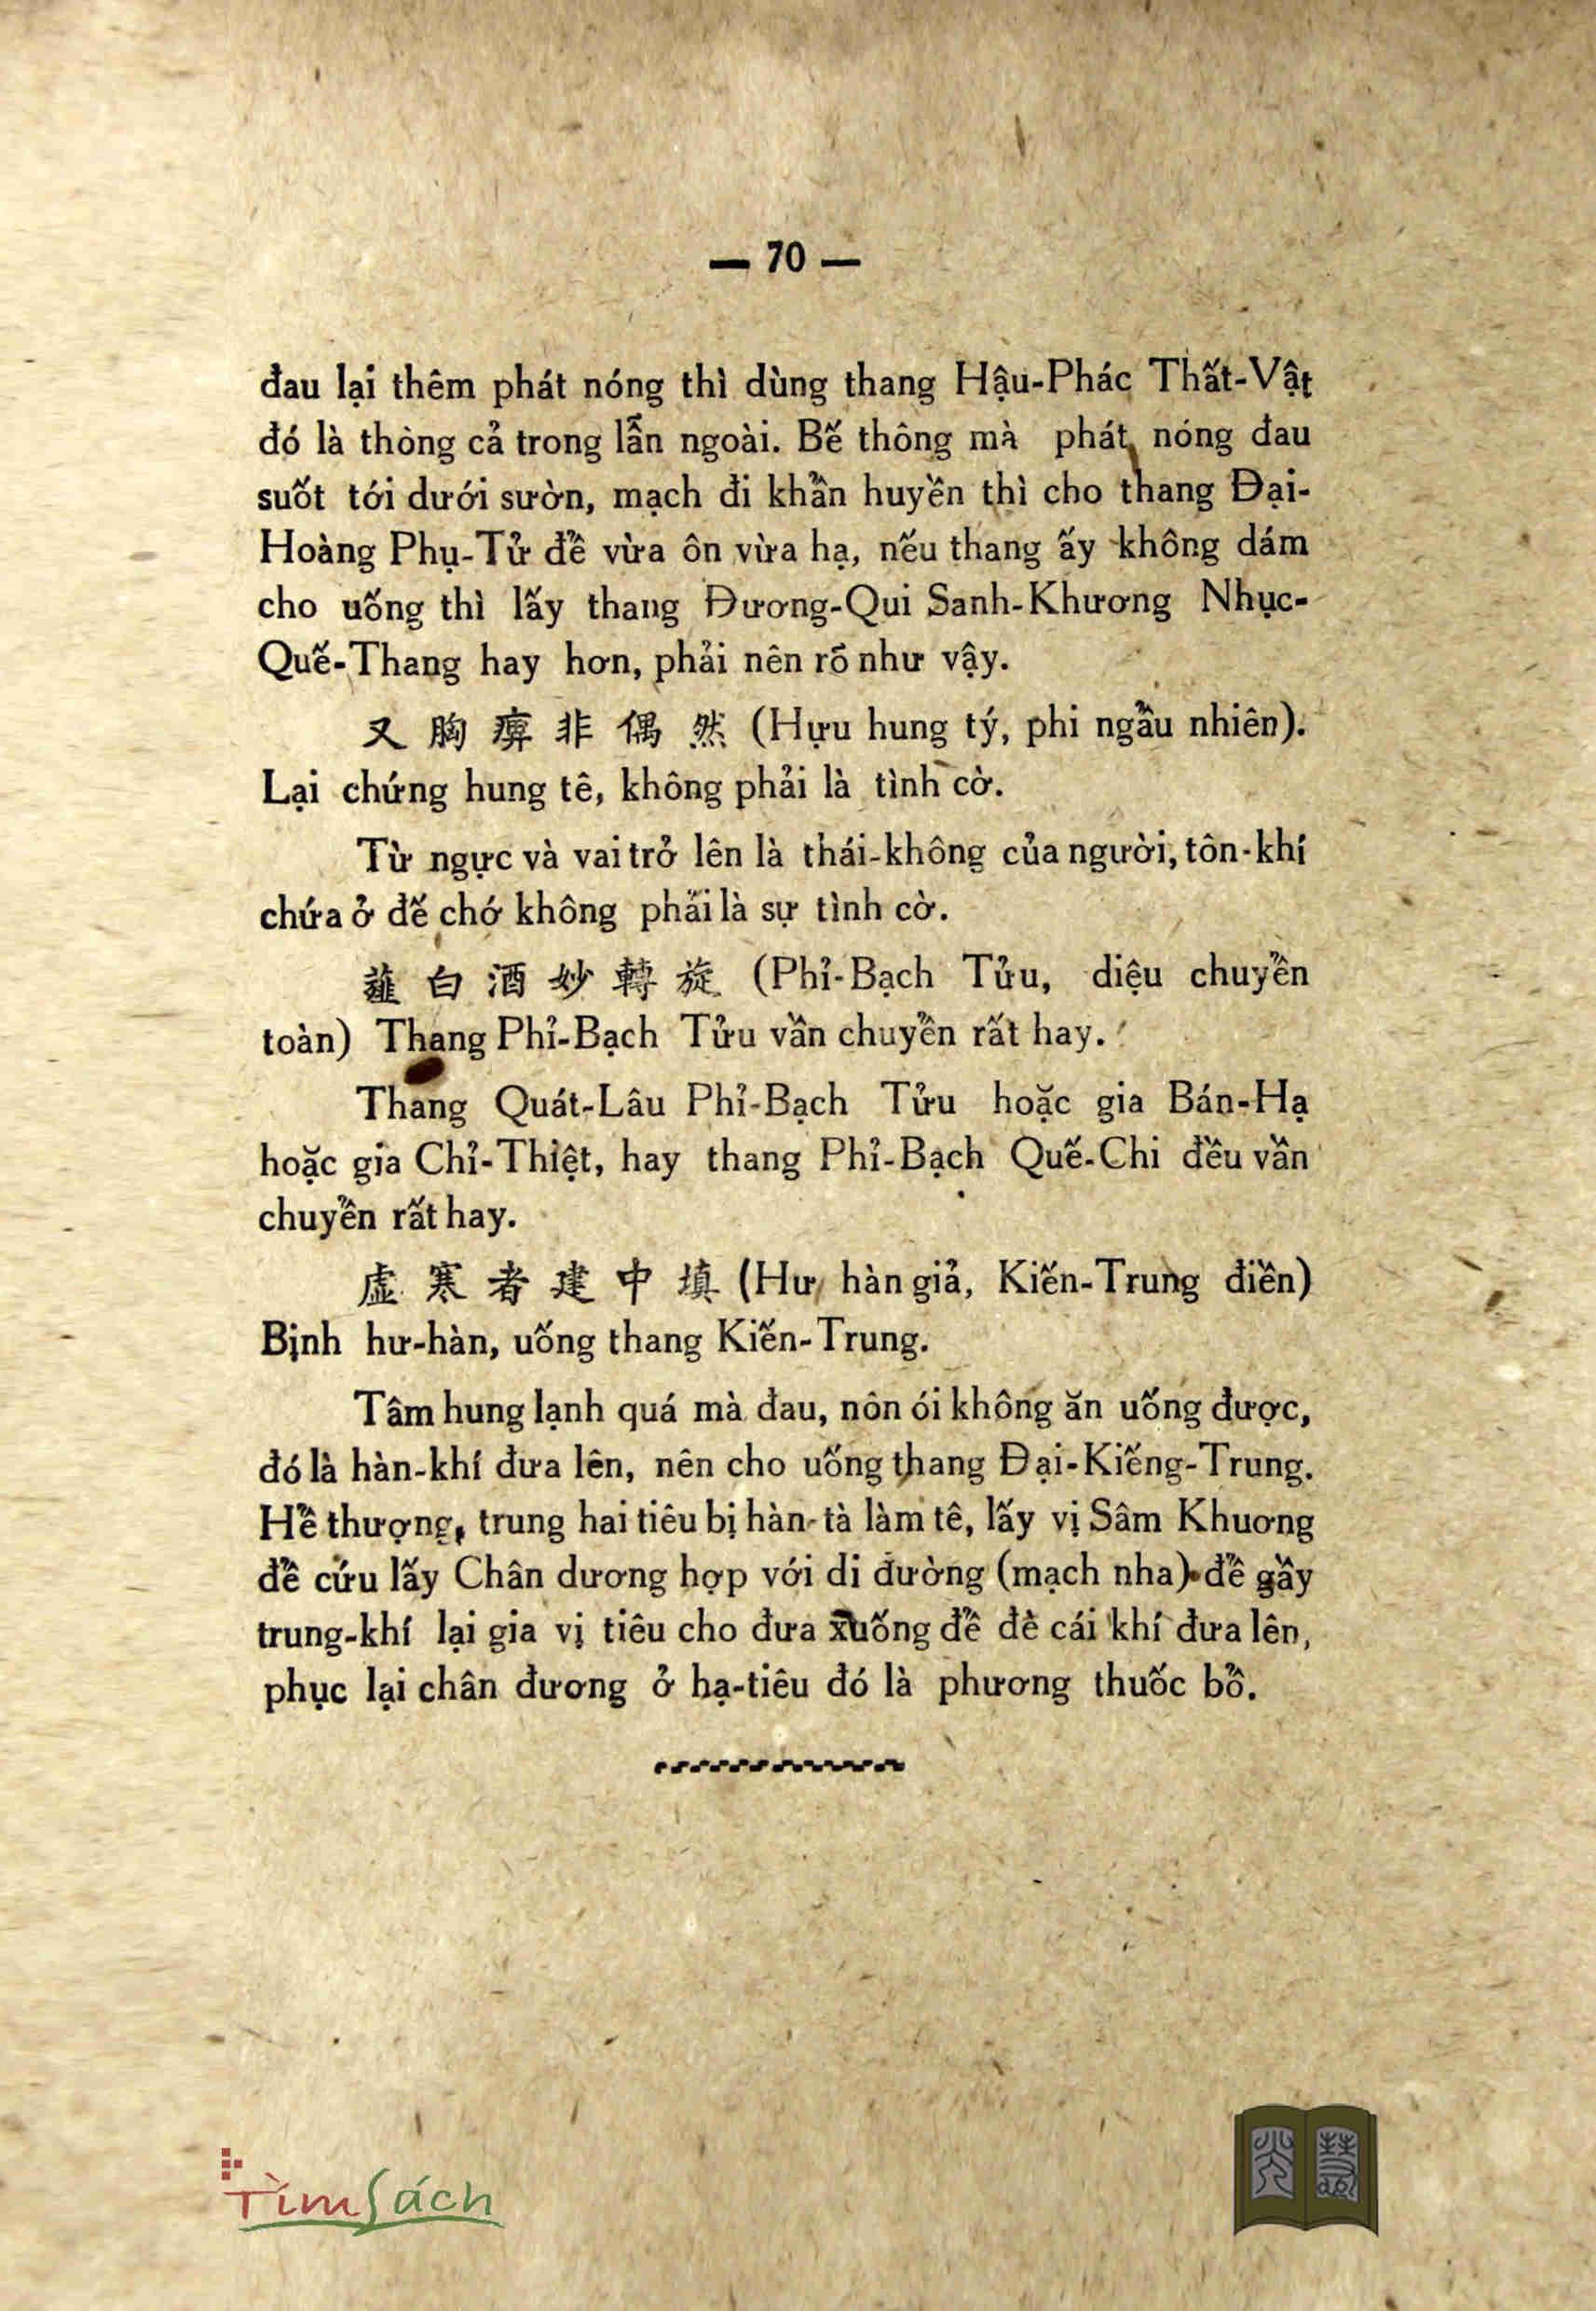 — 70 —
đau lại thêm phát nóng thì dùng thang Hậu-Phác Thất-Vật
đó là thòng cả trong lẫn ngoài. Bế thông mà phát nóng đau
suốt tới dưới sườn, mạch đi khẩn huyền thì cho thang Đại-
Hoàng Phụ-Tử để vừa ôn vừa hạ, nếu thang ấy không dám
cho uống thì lấy thang Đương-Qui Sanh-Khương Nhục-
Quế-Thang hay hơn, phải nên rõ như vậy.
又 胸 痹 非 偶 然 (Hựu hung tý, phi ngẫu nhiên).
Lại chứng hung tê, không phải là tình cờ.
Từ ngực và vai trở lên là thái-không của người, tôn-khí
chứa ở đế chớ không phải là sự tình cờ.
薤 白 酒 妙 轉 旋 (Phỉ-Bạch Tửu, diệu chuyển
toàn) Thang Phỉ-Bạch Tửu vần chuyển rất hay.
Thang Quát-Lâu Phỉ-Bạch Tửu hoặc gia Bán-Hạ
hoặc gia Chỉ-Thiệt, hay thang Phỉ-Bạch Quế-Chi đều vần
chuyển rất hay.
虛 寒 者 建 中 填 (Hư hàn giả, Kiến-Trung điền)
Bịnh hư-hàn, uống thang Kiến-Trung.
Tâm hung lạnh quá mà đau, nôn ói không ăn uống được,
đó là hàn-khí đưa lên, nên cho uống thang Đại-Kiếng-Trung.
Hễ thượng, trung hai tiêu bị hàn-tà làm tê, lấy vị Sâm Khuơng
để cứu lấy Chân dương hợp với di đường (mạch nha) để gầy
trung-khí lại gia vị tiêu cho đưa xuống để đè cái khí đưa lên,
phục lại chân đương ở hạ-tiêu đó là phương thuốc bổ.
TìmSách